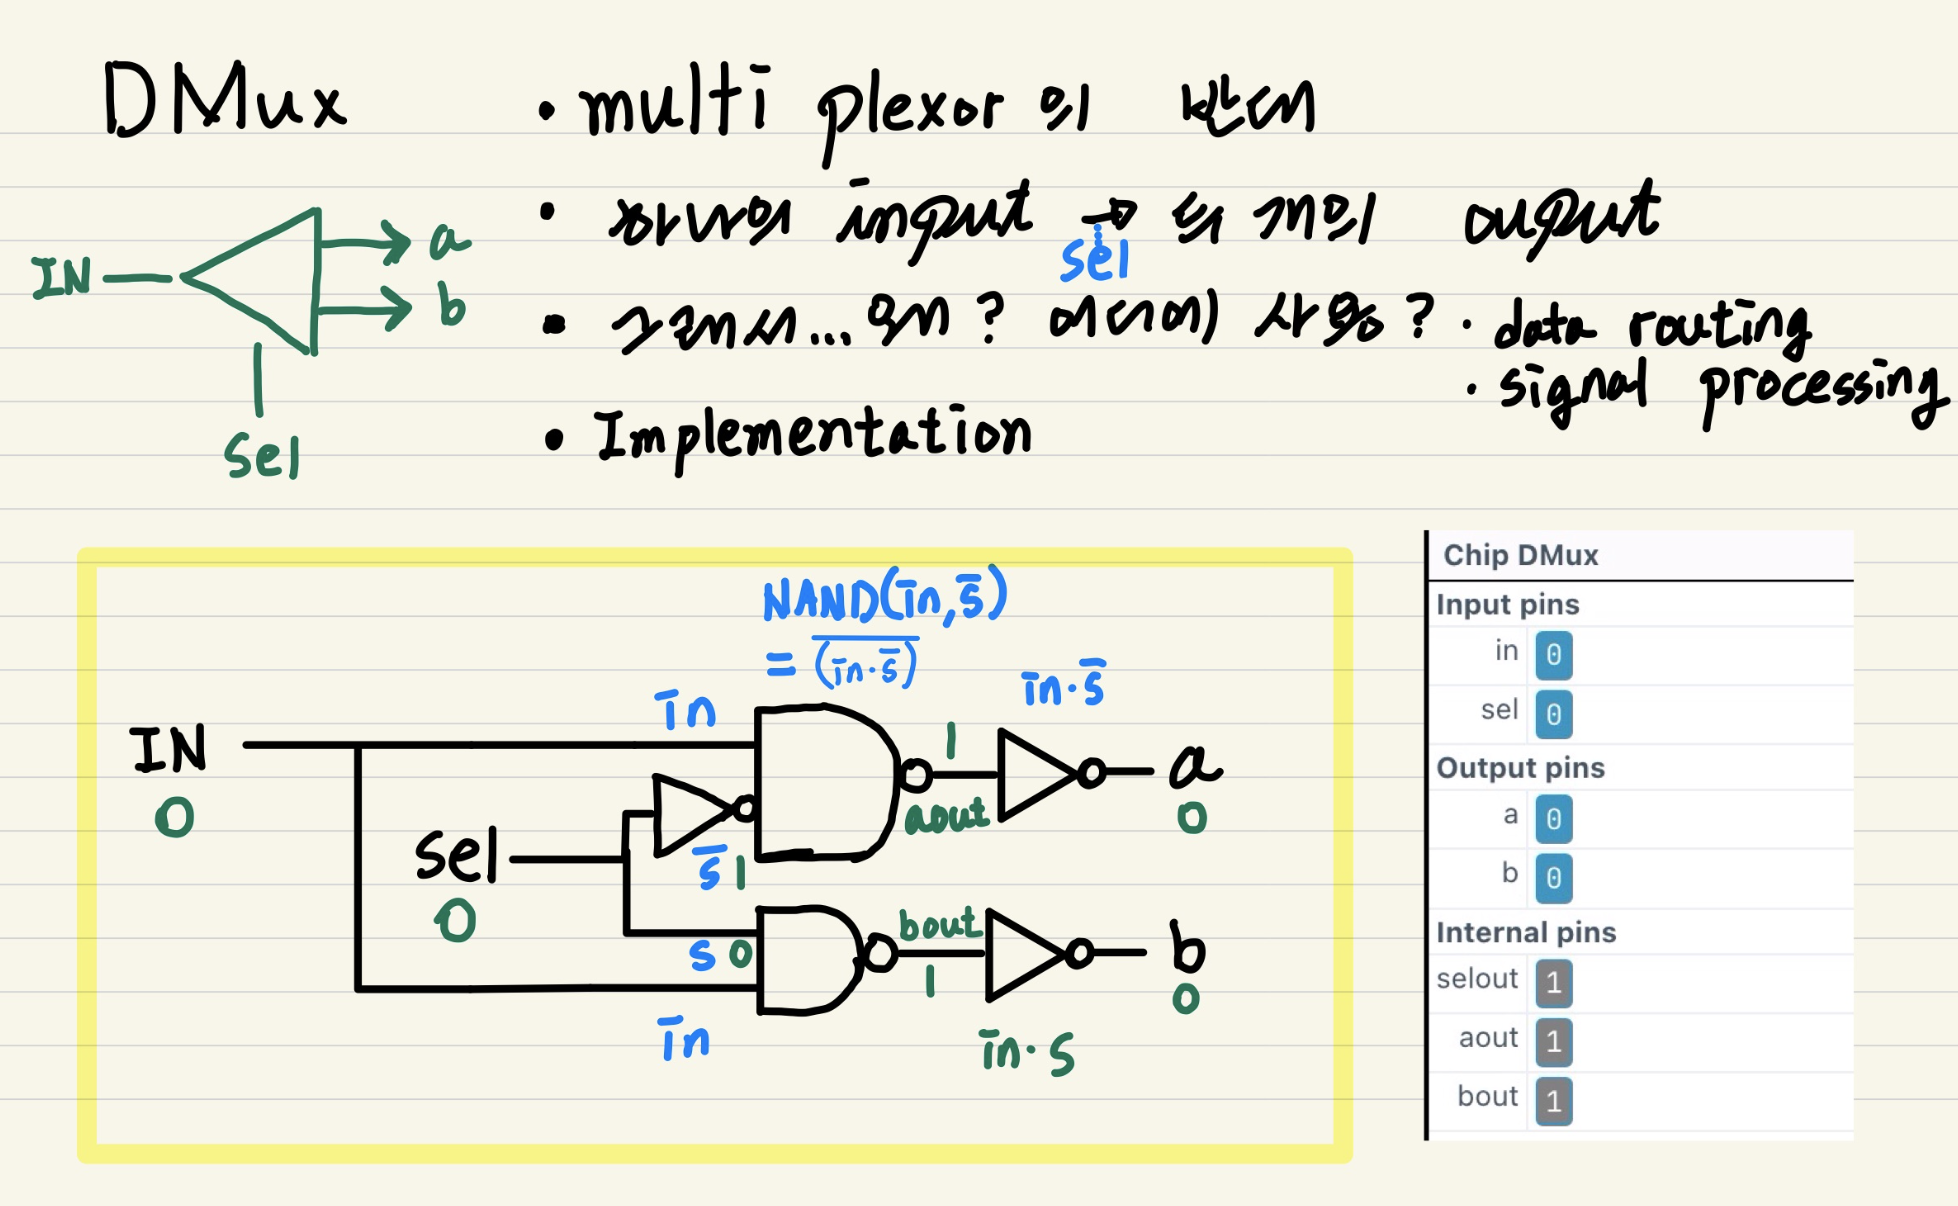 DMux
• multi plexor의 반대
• 하나의 input → 여러 개의 ouput
sel
• 그래서... 왜? 어디에 사용?
• data routing
• signal processing
• Implementation
IN
a
b
sel
NAND(in, s̅)
= \overline{(in·s̅)}
in·s̅
in
IN
0
1
aout
a
0
sel
0
s̅ 1
s 0
bout
1
b
0
in
in·s
Chip DMux
Input pins
in 0
sel 0
Output pins
a 0
b 0
Internal pins
selout 1
aout 1
bout 1